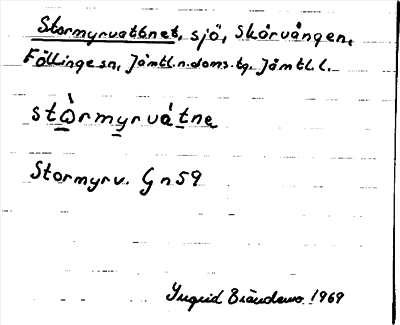 Stormyrvattnet, sjö, Skärvången,
Föllinge sn, Jämtl.n.doms.tg. Jämtl. l.
stò̠rmy̠rvát̠ne
Stormyrv. Gn59
Ingrid 1969